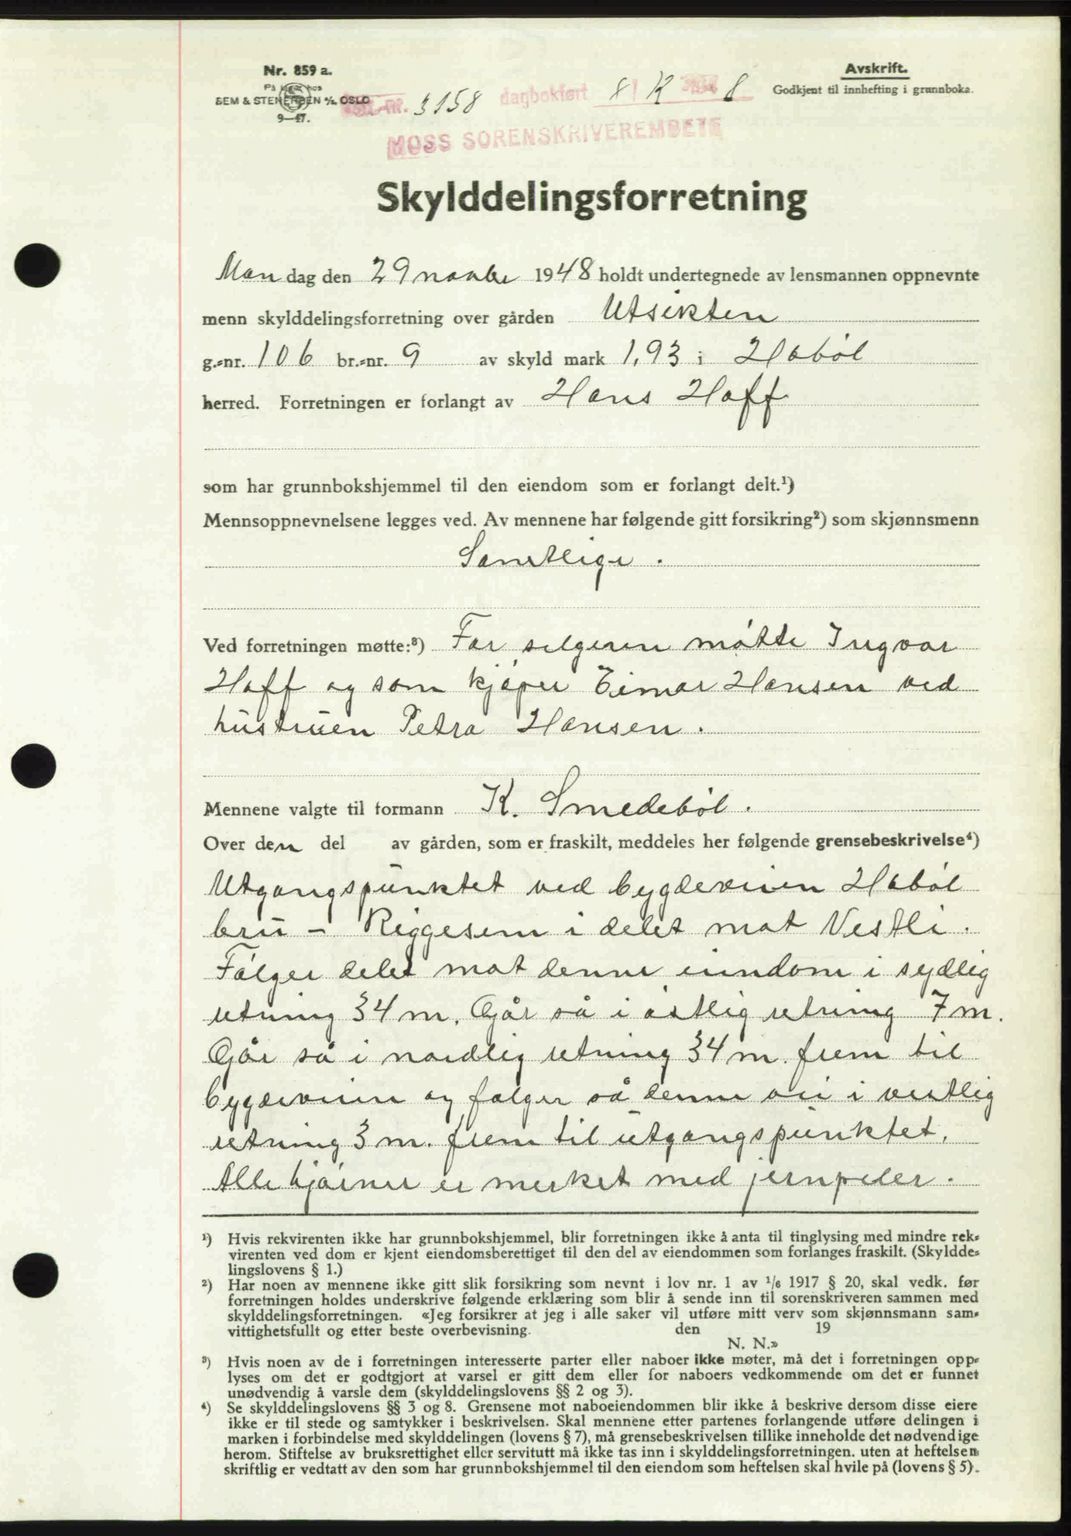 Nr. 859 a.
På lager hos
SEM & STENERSEN A/S, OSLO
9—47.
3158 dagbokført 8/12 1948
MOSS SORENSKRIVEREMBETE
Avskrift.
Godkjent til innhefting i grunnboka.
Skylddelingsforretning
Man dag den 29 novbr 1948 holdt undertegnede av lensmannen oppnevnte
menn skylddelingsforretning over gården Utsikten
g.-nr. 106 br.-nr. 9 av skyld mark 1,93 i Hobøl
herred. Forretningen er forlangt av Hans Haff
som har grunnbokshjemmel til den eiendom som er forlangt delt.¹)
Mennsoppnevnelsene legges ved. Av mennene har følgende gitt forsikring²) som skjønnsmenn
Samtlige.
Ved forretningen møtte:³) For selgeren møtte Ingvar
Haff og som kjøper Einar Hansen ved
hustruen Petra Hansen.
Mennene valgte til formann K. Smedebøl.
Over den del av gården, som er fraskilt, meddeles her følgende grensebeskrivelse⁴)
Utgangspunktet ved bygdeveien Hobøl
bru - Riggesem i delet mot Vestli.
Følger delet mot denne eiendom i sydlig
retning 34 m. Går så i østlig retning 7 m.
Går så i nordlig retning 34 m. frem til
bygdeveien og følger så denne vei i vestlig
retning 3 m. frem til utgangspunktet.
Alle hjørner er merket med jernpeler.
¹) Hvis rekvirenten ikke har grunnbokshjemmel, blir forretningen ikke å anta til tinglysing med mindre rek-
virenten ved dom er kjent eiendomsberettiget til den del av eiendommen som forlanges fraskilt. (Skyldde-
lingslovens § 1.)
²) Har noen av mennene ikke gitt slik forsikring som nevnt i lov nr. 1 av 1/6 1917 § 20, skal vedk. før
forretningen holdes underskrive følgende erklæring som blir å sende inn til sorenskriveren sammen med
skylddelingsforretningen. «Jeg forsikrer at jeg i alle saker vil utføre mitt verv som skjønnsmann sam-
vittighetsfullt og etter beste overbevisning. den 19
N. N.»
³) Hvis noen av de i forretningen interesserte parter eller naboer ikke møter, må det i forretningen opp-
lyses om det er godtgjort at varsel er gitt dem eller for naboers vedkommende om det er funnet
unødvendig å varsle dem (skylddelingslovens §§ 2 og 3).
⁴) Se skylddelingslovens §§ 3 og 8. Grensene mot naboeiendommen blir ikke å beskrive dersom disse eiere
ikke er til stede og samtykker i beskrivelsen. Skal mennene etter partenes forlangende utføre delingen i
marken i forbindelse med skylddelingen (lovens § 7), må grensebeskrivelsen tillike inneholde det nødvendige
herom. Stiftelse av bruksrettighet eller servitutt må ikke tas inn i skylddelingsforretningen. uten at heftelsen
skriftlig er vedtatt av den som har grunnbokshjemmel til den eiendom som heftelsen skal hvile på (lovens § 5).